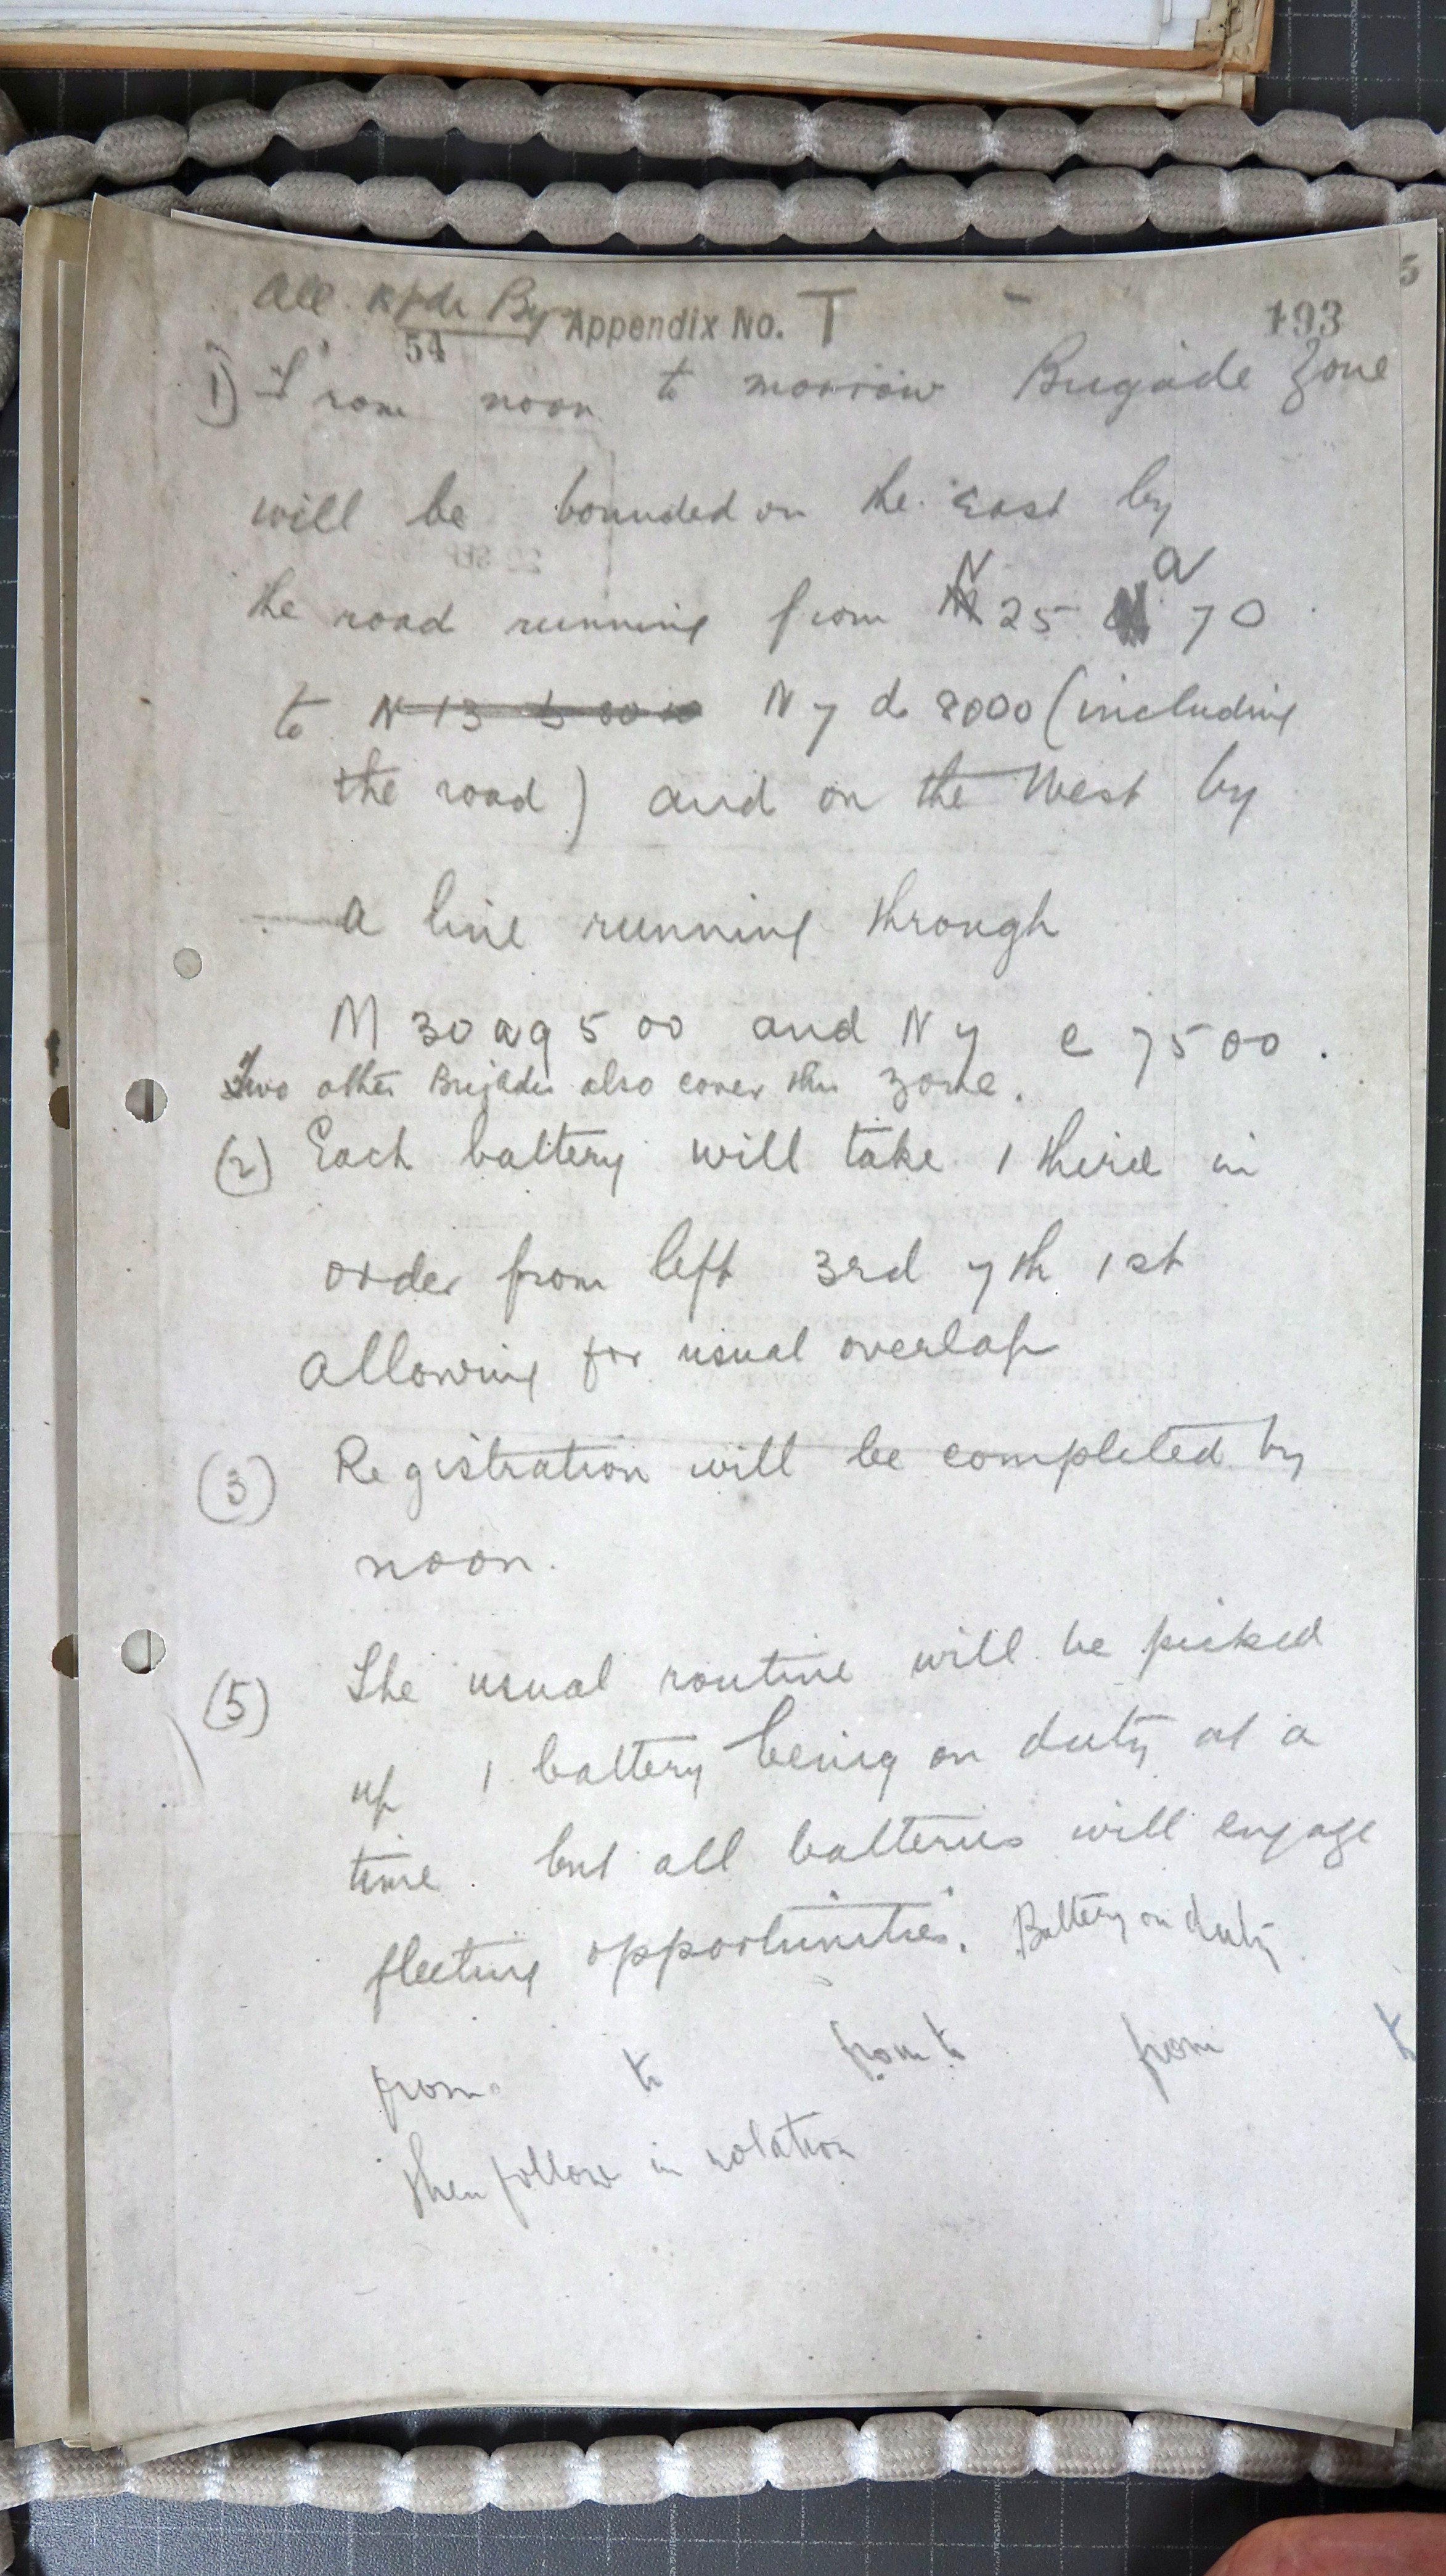 All Bty Appendix No. T 193
54
1) From noon to morrow Brigade Zone
will be bounded on the East by
the road running from N 25 a 70
to N 13 b 80 00 N 7 d 8000 (including
the road) and on the West by
a line running through
M 30 a 9500 and N 7 c 7500.
Two other Brigades also cover this zone.
(2) Each battery will take 1 third in
order from left 3rd 7th 1st
Allowing for usual overlap
(3) Registration will be completed by
noon.
(5) The usual routine will be picked
up 1 battery being on duty at a
time. but all batteries will engage
fleeting opportunities. Battery on duty
from to from to from to
then follow in rotation